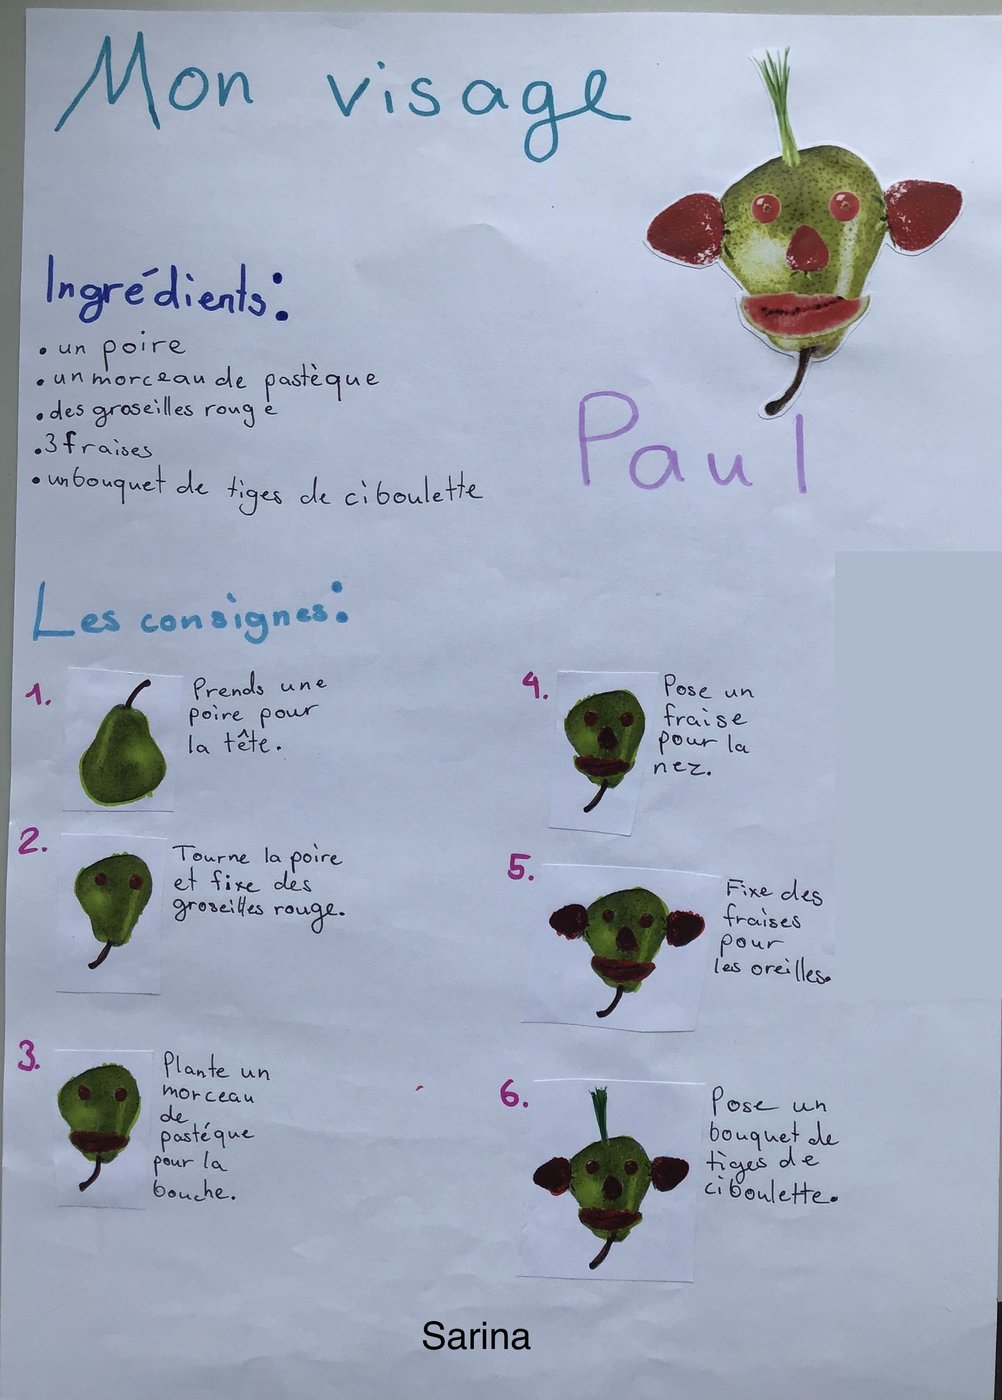 Mon visage
Ingrédients:
• un poire
• un morceau de pastèque
• des groseilles rouge
• 3 fraises
• un bouquet de tiges de ciboulette
Paul
Les consignes:
1.
Prends une
poire pour
la tête.
2.
Tourne la poire
et fixe des
groseilles rouge.
3.
Plante un
morceau
de
pastéque
pour la
bouche.
4.
Pose un
fraise
pour la
nez.
5.
Fixe des
fraises
pour
les oreilles.
6.
Pose un
bouquet de
tiges de
ciboulette.
Sarina